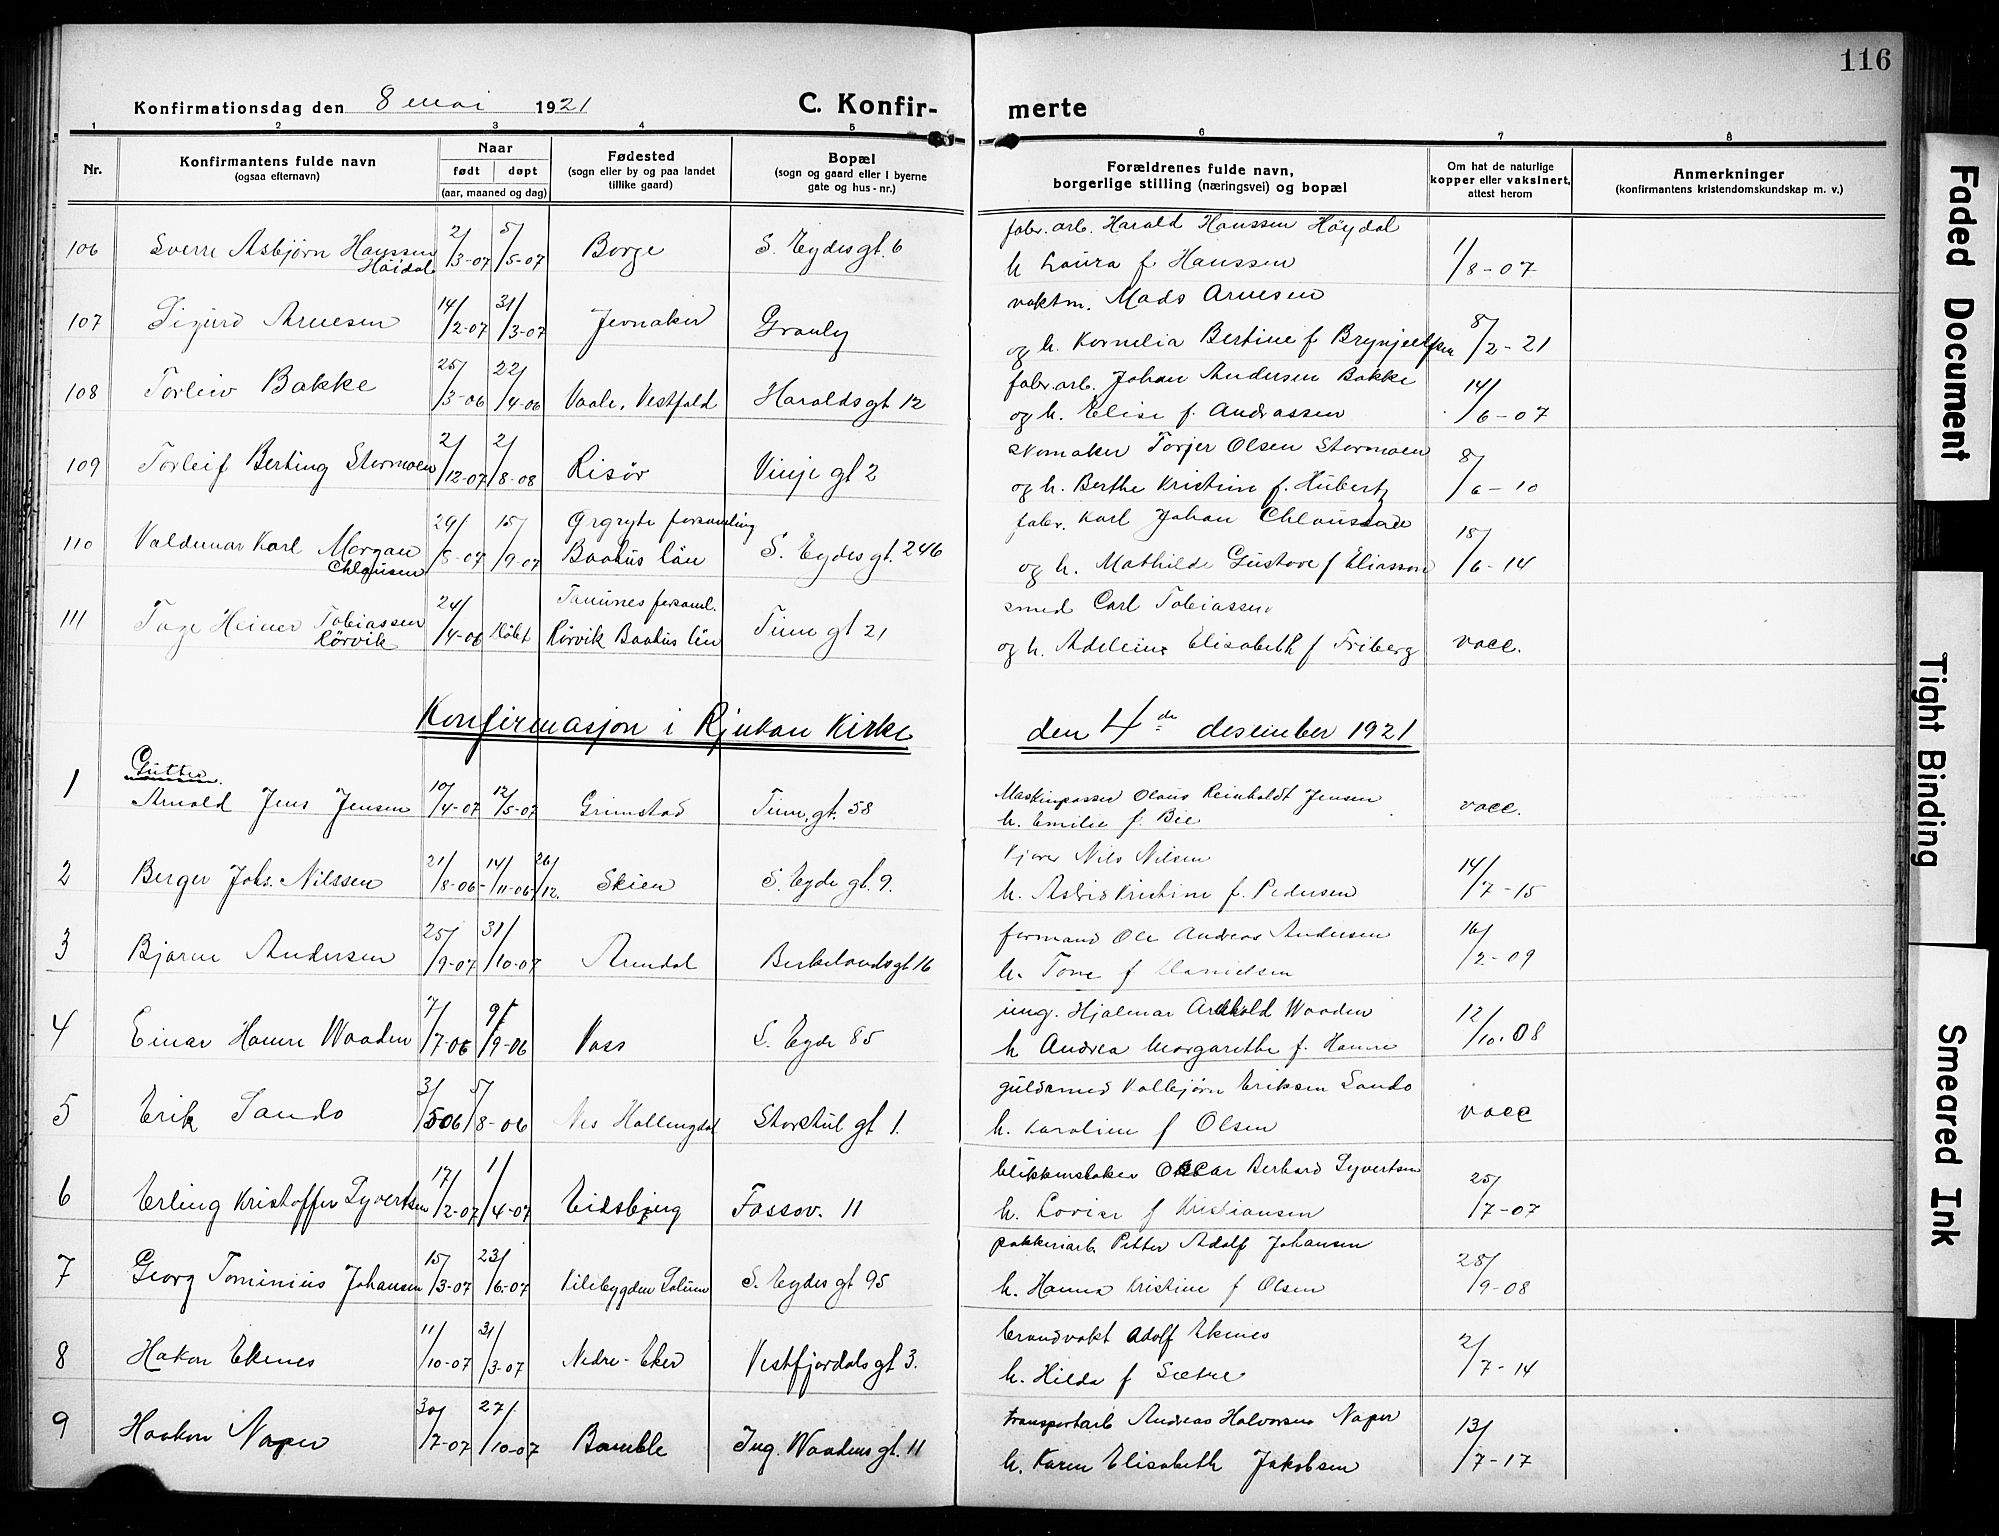 116
Konfirmationsdag den 8 mai 1921
C. Konfir-
merte
1 2 3 4 5 6 7 8
Nr.
Konfirmantens fulde navn
(ogsaa efternavn)
Naar
født døpt
(aar, maaned og dag)
Fødested
(sogn eller by og paa landet
tillike gaard)
Bopæl
(sogn og gaard eller i byerne
gate og hus-nr.)
Forældrenes fulde navn,
borgerlige stilling (næringsvei) og bopæl
Om hat de naturlige
kopper eller vaksinert,
attest herom
Anmerkninger
(konfirmantens kristendomskundskap m. v.)
106 Sverre Asbjørn Hanssen 2/3-07 5/5-07 Borge S. Eydesgt. 6
Høidal
fabr. arb. Harald Hanssen Høydal
h Laura f Hanssen 1/8-07
107 Sigurd Arnesen 14/2-07 31/3-07 Jevnaker Granly
vaktm. Mads Arnesen
og h. Kornelia Bertine f Brynjelfsen 8/2-21
108 Torleiv Bakke 25/3-06 22/4-06 Vaale, Vestfold Haraldsgt 12
fabr. arb. Johan Andersen Bakke
og h. Elise f. Andreassen 14/6-07
109 Torleif Berting Stormoen 2/12-07 2/8-08 Risør Vinje gt 2
skomaker Torjer Olsen Stormoen
og h. Berthe Kristine f. Hubertz 8/6-10
110 Valdemar Karl Morgan 29/8-07 15/9-07 Ørgryte forsamling
Chlausen Baahus län S. Eydes gt. 246
fabr. Karl Johan
og h. Mathilde Gustava f Eliasson 15/6-14
111 Tage Heiner Tobiassen 24/4-06 Tanunes forsaml.
Rörvik Rörvik Baahus län Tinn gt 21
smed Carl Tobiassen
og h. Adeleine Elisabeth f Friberg vacc.
Konfirmasjon i Rjukan Kirke
den 4de desember 1921
Gutter.
1 Arnold Jens Jensen 10/4-07 12/5-07 Grimstad Tinn. gt. 58
Maskinpasser Olaus Reinholdt Jensen
h. Emilie f. Bie vacc.
2 Berger Johs. Nilssen 21/8-06 14/11-06 26/12. Skien S. Eyde gt. 9.
kjører Nils Nilsen
h. Astrid Kristine f. Pedersen 14/7-15
3 Bjarne Andersen 25/9-07 31/10-07 Arendal Berkelandsgt 16
formand Ole Andreas Andersen
h. Tone f Danielsen 16/2-09
4 Einar Hamre Waaden 7/7-06 9/9-06 Voss S. Eyde 85
ing. Hjalmar Waaden
h Andrea Margarethe f. Hamre 12/10-08
5 Erik Sando 3/5 06 5/8-06 Nes Hallingdal Storstul gt 1.
guldsmed Kolbjørn Eriksen Sando
h. Karoline f Olsen vacc
6 Erling Kristoffer Syvertsen 17/2-07 1/4-07 Eidsberg Fossov. 11
blikkenslaker Oscar Berhard Syvertsen
h. Lovise f Kristiansen 25/7-07
7 Georg Tominius Johansen 15/3-07 23/6-07 Kilebygden Solum S. Eydes gt 95
pakkeriarb. Petter Adolf Johansen
h. Hanna Kristine f Olsen 28/9-08
8 Hakon Ekenes 11/10-07 31/3-07 Nedre-Eker Vestfjordalsgt 3.
brandvakt Adolf Ekenes
h. Hilda f Sætre 2/7-14
9 Haakon Naper 30/7-07 27/10-07 Bamble Ing. Waadens gt. 11
transportarb Andreas Halvorsen Naper
h. Karen Elisabeth Jakobsen 13/7-17
Faded Document
Tight Binding
Smeared Ink